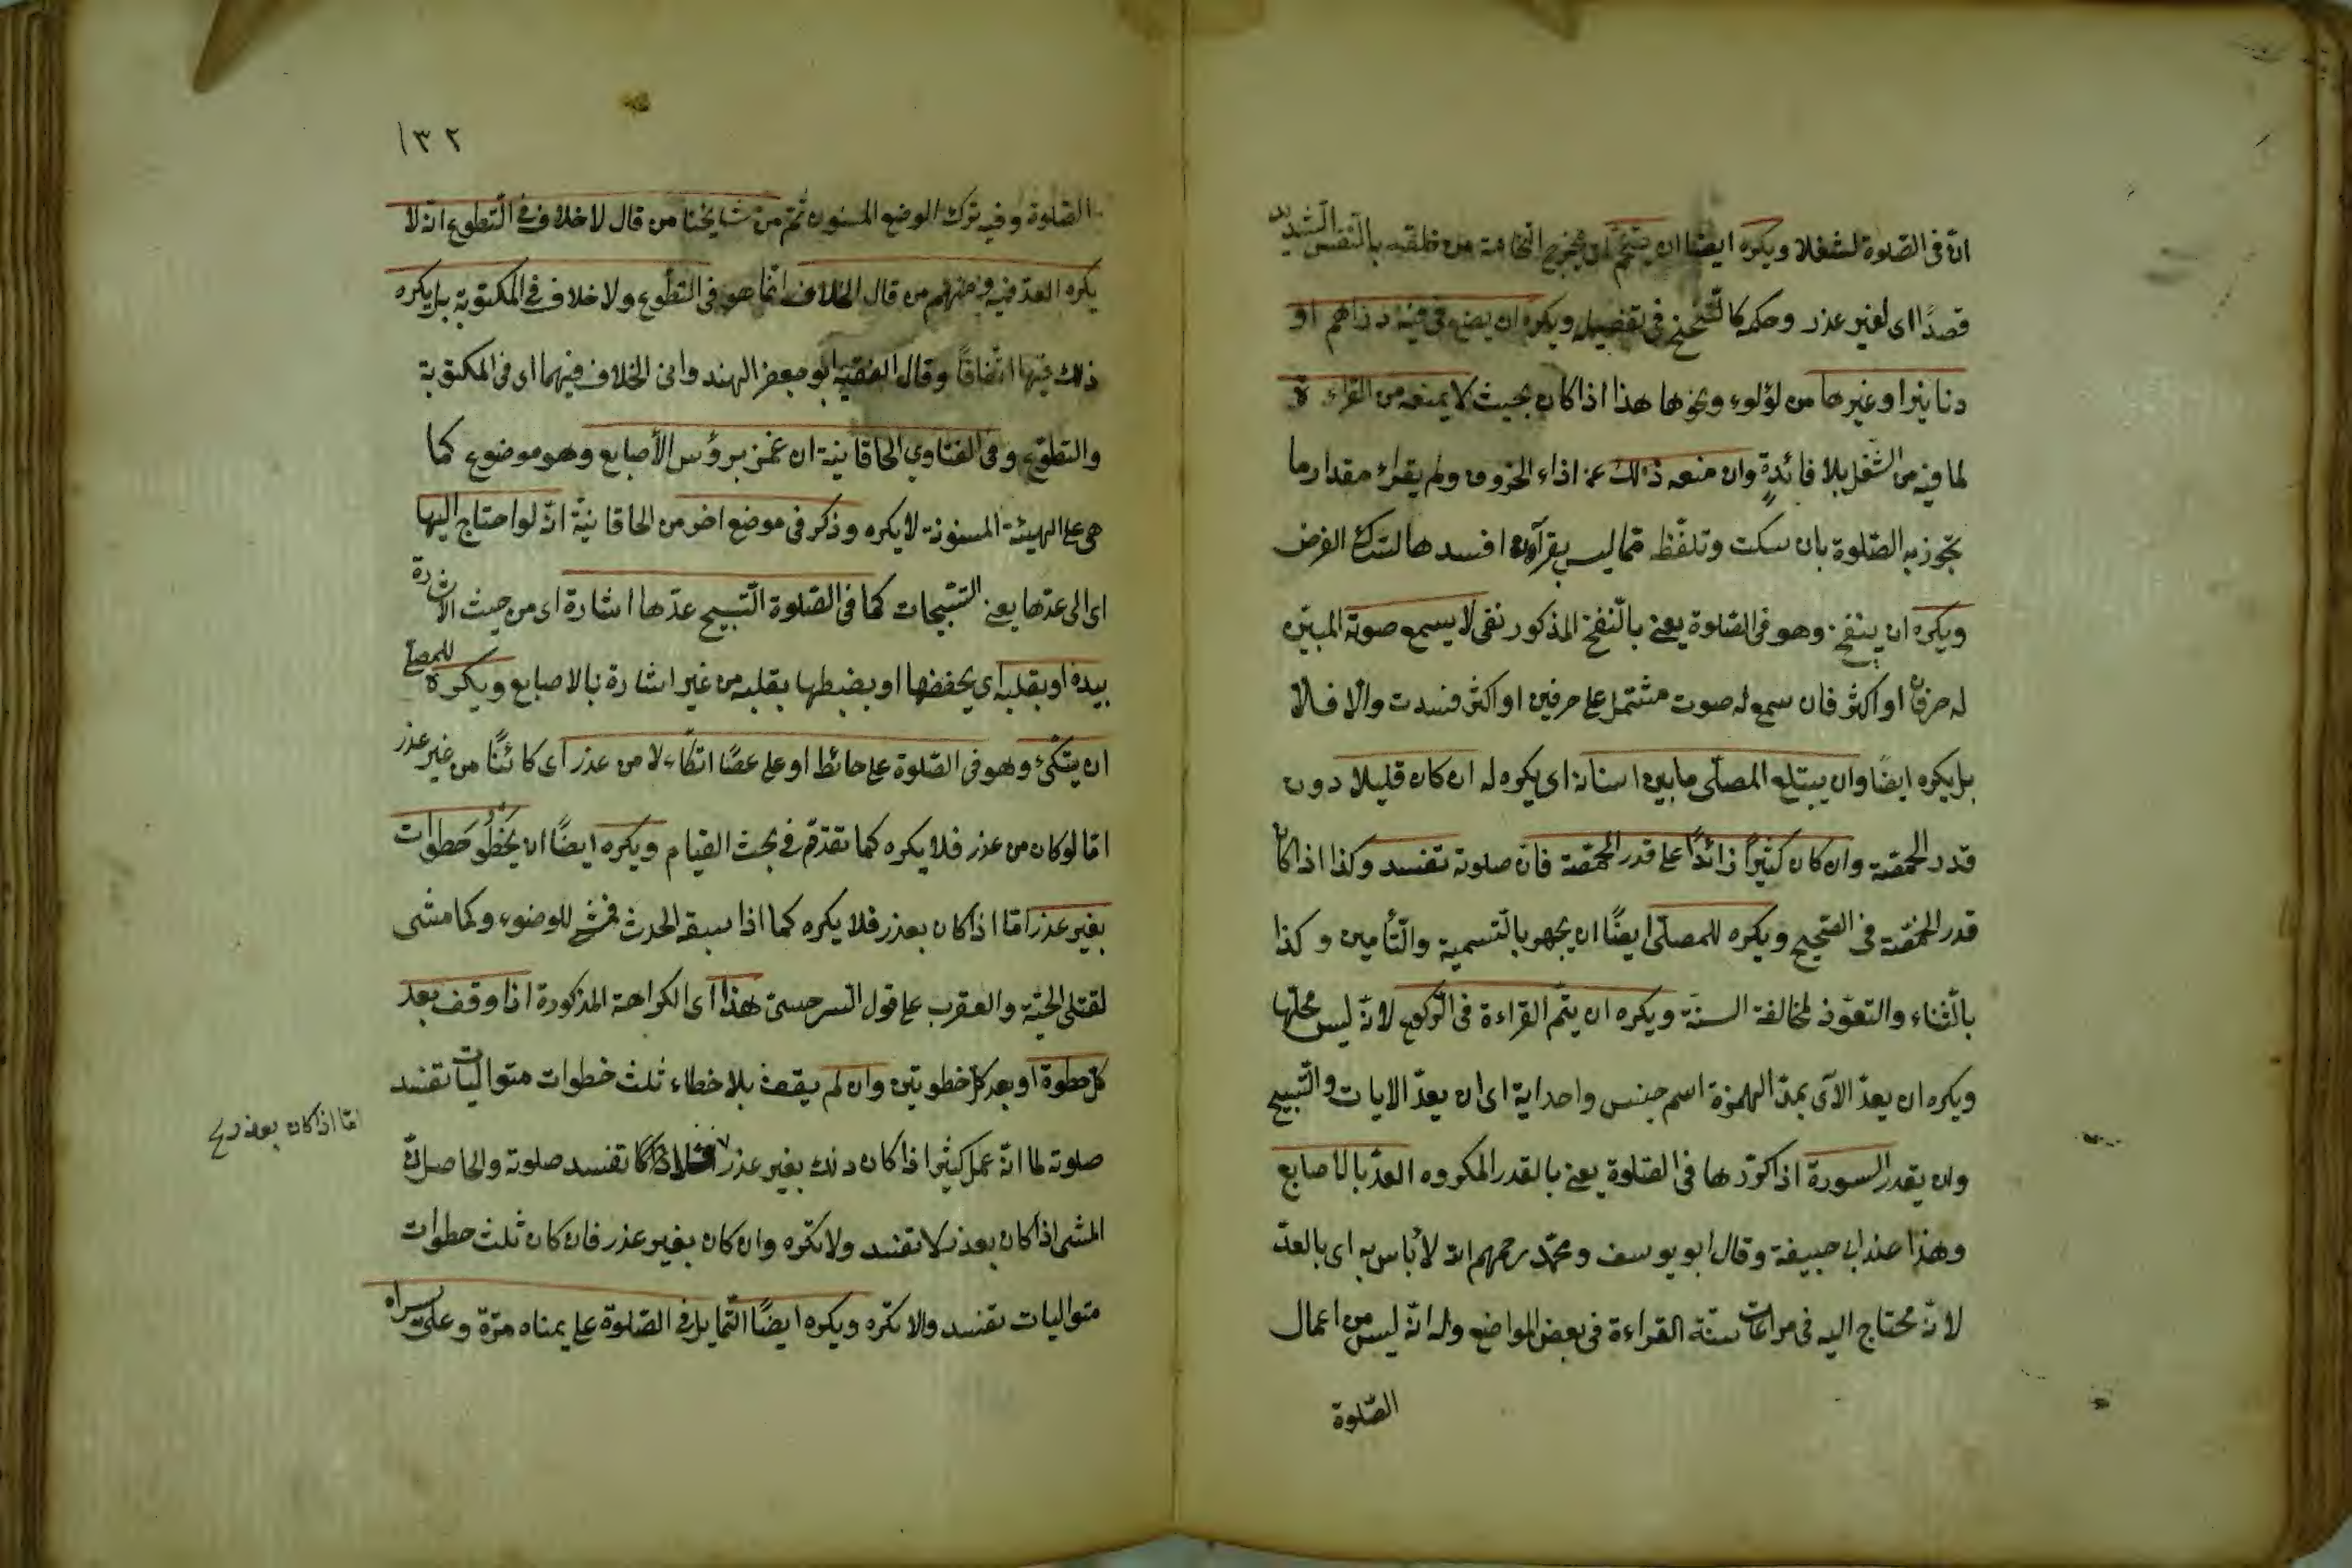 ان فى الصلوة لشغلا ويكره ايضا ان يتنخم اى يخرج النخامة من حلقه بالتنفس الشديد
قصدًا اى لغير عذر وحكمه كالتنحنح فى تفصيله ويكره ان يضع فى فيه دراهم او
دنانيرا وغيرها من لؤلوء ونحوها هذا اذا كان بحيث لا يمنعه من القراءة
لما فيه من الشغل بلا فائدة وان منعه ذلك عن اداء الحروف ولم يقراء مقدار ما
تجوز به الصّلوة بان سكت وتلفّظ مما ليس بقرآن افسدها لترك الفرض
ويكره ان ينفخ وهو فى الصّلوة يعنى بالنّفخ المذكور نفى لا يسمع صوته المبيّن
له حرفان او اكثر فان سمع له صوت مشتمل على حرفين او اكثر فسدت والّا فلا
بل يكره ايضًا وان يبتلع المصلّى ما بين اسنانه اى يكره له ان كان قليلا دون
قدر الحمّصة وان كان كثيرًا زائدًا على قدر الحمّصة فانّ صلوته تفسد وكذا اذا كان
قدر الحمّصة فى الصّحيح ويكره للمصلّى ايضًا ان يجهر بالتّسمية والتّأمين وكذا
بالثّناء والتعوّذ لمخالفة السنّة ويكره ان يتمّ القراءة فى الرّكوع لانّه ليس محلّها
ويكره ان يعدّ الآى بمدّ الهمزة اسم جنس واحد اية اى ان يعدّ الايات والتّسبيح
وان يقدر السورة اذا كرّرها فى الصّلوة يعنى بالقدر المكروه العدّ بالاصابع
وهذا عند ابى حنيفة وقال ابو يوسف ومحمّد رحمهم الله لا بأس به اى بالعدّ
لانّه محتاج اليه فى مراعات سنّة القراءة فى بعض المواضع وله انّه ليس من اعمال
الصّلوة
١٣٢
الصّلوة وفيه ترك الوضع المسنون ثمّ من مشايخنا من قال لا خلاف فى التّطوع انه لا
يكره العدّ فيه ومنهم من قال الخلاف انّما هو فى التّطوّع ولا خلاف فى المكتوبة بل يكره
ذلك فيها اتّفاقًا وقال الفقيه ابو جعفر الهندوانى الخلاف فيهما اى فى المكتوبة
والتطوّع وفى الفتاوى الخاقانية ان غمز برؤس الأصابع وهو موضوع كما
هى على الهيئة المسنونة لا يكره وذكر فى موضع اخر من الخاقانيّة انّه لو احتاج اليها
اى الى عدّها يعنى التسبيحات كما فى الصّلوة التّسبيح عدّها اشارة اى من حيث الاشارة
بيده او بقلبه اى يحفظها او يضبطها بقلبه من غير اشارة بالاصابع ويكره للمصلى
ان يتكئ وهو فى الصّلوة على حائط او على عصًا اتكاء لا من عذر اى كائنًا من غير عذر
امّا لو كان من عذر فلا يكره كما تقدّم فى بحث القيام ويكره ايضًا ان يخطُوَ خطوات
بغير عذر امّا اذا كان بعذر فلا يكره كما اذا سبقه الحدث فمشى للوضوء وكما مشى
لقتل الحيّة والعقرب على قول السرخسى هذا اى الكراهة المذكورة اذا وقف بعد
كل خطوة او بعد كل خطوتين وان لم يقف بل اخطاء ثلث خطوات متواليات تفسد
صلوته لما انّه عمل كثير اذا كان ذلك بغير عذر تفسد صلوته والحاصل انّ
امّا اذا كان بعذر
المشى اذا كان بعذر لا تفسد ولا تكره وان كان بغير عذر فان كان ثلث خطوات
متواليات تفسد والا تكره ويكره ايضًا التّمايل فى الصّلوة على يمناه مرّة وعلى يسراه